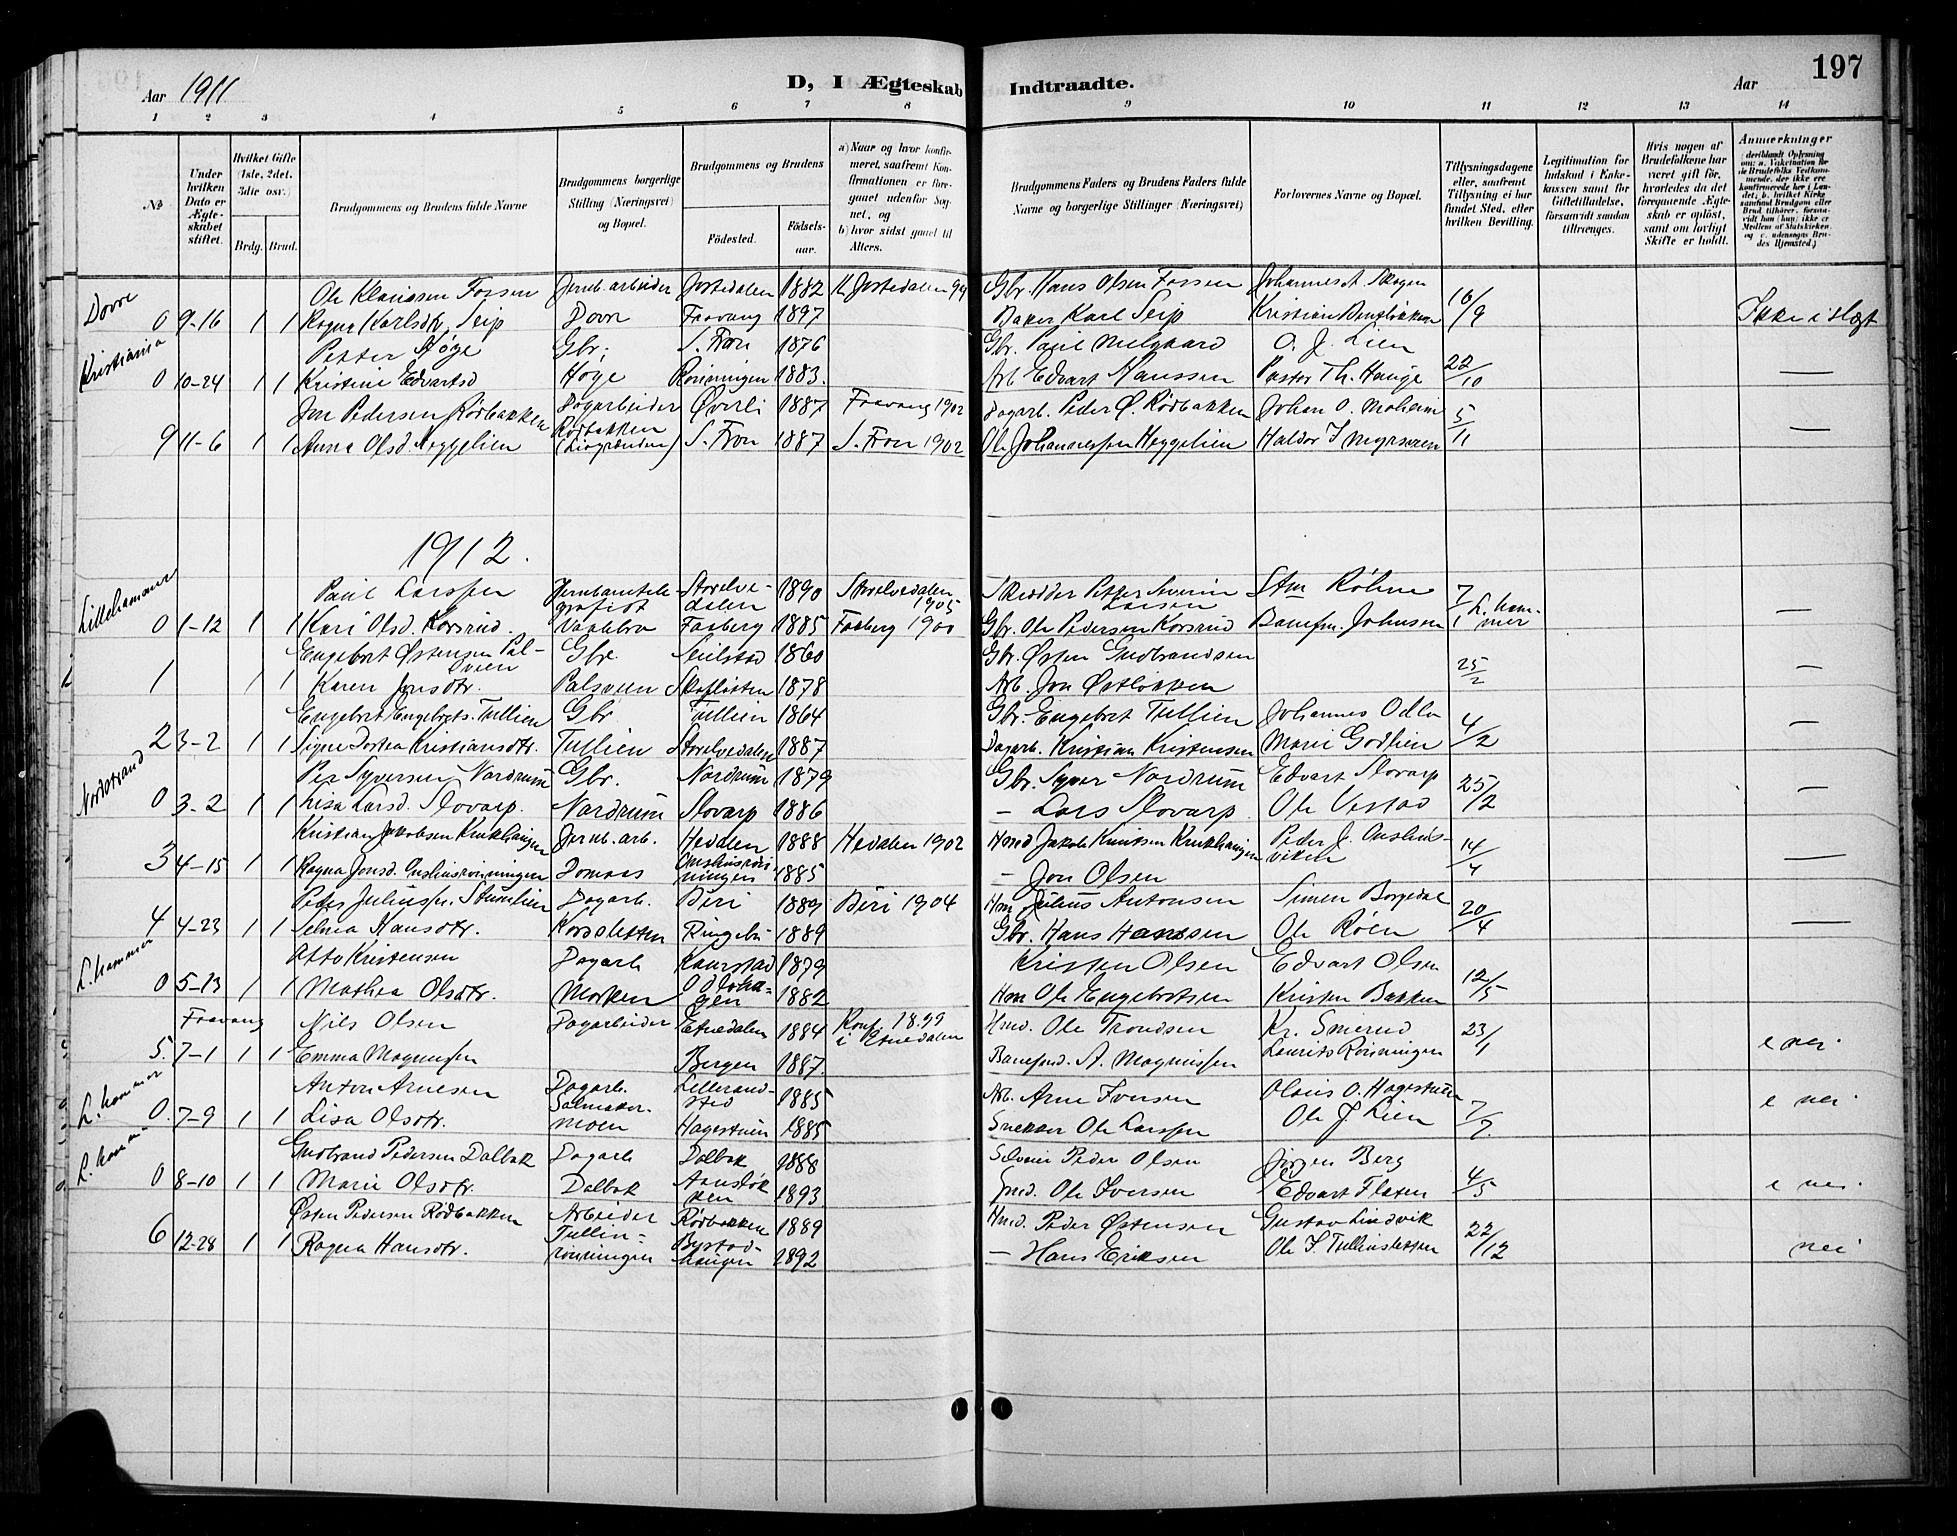 197
Aar 1911
D, I Ægteskab Indtraadte.
Aar
1 2 3 4 5 6 7 8 9 10 11 12 13 14
No.
Under hvilken Dato er Ægteskabet stiftet.
Hvilket Gifte (1ste, 2det, 3die osv.)
Brdg. Brud.
Brudgommens og Brudens fulde Navne
Brudgommens borgerlige Stilling (Næringsvei) og Bopæl.
Brudgommens og Brudens
Fødested.
Fødselsaar.
a) Naar og hvor konfirmeret, saafremt Konfirmationen er foregaaet udenfor Sognet, og
b) hvor sidst gaaet til Alters.
Brudgommens Faders og Brudens Faders fulde Navne og borgerlige Stillinger (Næringsvei)
Forlovernes Navne og Bopæl.
Tillysningsdagene eller, saafremt Tillysning ei har fundet Sted, efter hvilken Bevilling.
Legitimation for Indskud i Enkekassen samt for Giftetilladelse, forsaavidt saadan tiltrænges.
Hvis nogen af Brudefolkene har været gift før, hvorledes da det foregaaende Ægteskab er opløst, samt om lovligt Skifte er holdt.
Anmerkninger
Dovre Ole Klausen Fossen Jernb. arbeider Jostedalen 1882 K Jostedalen 94 Gbr. Hans Olsen Fossen Johannes A. Skogen 16/9
0 9-16 1 1 Ragna Karlsdtr. Seip Dovre Faavang 1897 Baker Karl Seip Kristian Ikke i slægt
Kristiania Petter Høge Gbr; S. Fron 1876 Gbr. Paul Melgaard O. J. Lien 22/10
0 10-24 1 1 Kristine Edvartsd Høge 1883. Arb. Edvart Hanssen Pastor Th. Hauge —
Jon Pedersen Rødbakken Dagarbeider Øverli 1887 Faavang 1902 Dagarb. Peder Ø. Rødbakken Johan O. Moheim 5/11
9 11-6 1 1 Anna Olsd. Heggelien Rødbakken S. Fron 1887 S. Fron 1902 Ole Johannessen Heggelien Haldor J Myrseren —
1912.
Lillehammer Paul Larssen Jernbanetelegrafist Storelvedalen 1890 Storelvedalen 1905 Skrædder Petter Severin Larsen Røhne 7/1 L. hammer
0 1-12 1 1 Kari Olsd. Korsrud Vaalebro Faaberg 1885 Faaberg 1900 Gbr. Ole Pedersen Korsrud Banefm. Johnsen —
Engebret Østensen Palsveen Gbr. 1860 Gbr. Østen Gudbrandsen 25/2
1 1 1 Karen Jonsdtr. Palsveen Skofløtten 1878 Arb. Jon Østløkken —
Engebret Engebrets. Tullien Gbr Tullien 1864 Gbr. Engebret Tullien Johannes Odlo 4/2
2 3-2 1 1 Signe Dorthea Kristiansdtr. Tullien Storelvedalen 1887 Dagarb. Kristian Kristensen Marie Godlien —
Nordstrand Per Syversen Nordrum Gbr. Nordrum 1879 Gbr. Syver Nordrum Edvart Slovarp 25/2
0 3-2 1 1 Lisa Larsd. Slovarp. Nordrum Slovarp 1886 — Lars Slovarp Ole Vestad —
Kristian Jakobsen Krukhaugen Jernb. arb. Hedalen 1888 Hedalen 1902 Hmd Jakob Knutsen Krukhaugen Peder J. 14/4
3 4-15 1 1 Ragna Jonsd. Domaas 1885 — Jon Olsen —
Peder Juliussen Stumlien Dagarb. Biri 1889 Biri 1904 Hm Julius Antonsen Simen Borgedal 20/4
4 4-23 1 1 Selma Hansdtr. Korssletten Ringebu 1889 Gbr. Hans Hanssen Ole Røen —
L. hammer Otto Kristensen Dagarb Kaurstad 1879 Kristen Olsen Edvart Olsen 12/5
0 5-13 1 1 Mathea Olsdtr. Morken 1882 Hm Ole Engebretsen Kristen Bakken
Faavang Nils Olsen Dagarbeider Etnedalen 1884 Konf. 1899 i Etnedalen Hmd. Ole Trondsen Kr. Smerud 23/1
5. 7-1 1 1 Emma Magnussen Bergen 1887. Baneford. A. Magnussen Laurits Rønningen e nei.
L. hammer Anton Arnesen Dagarb. 1885 Arb. Arne Iversen Olaus O. Hagestuen 7/7.
0. 7-9 1 1 Lisa Olsdtr. Salmakermoen Hagestuen 1885 Snekker Ole Larssen Ole J. Lien e nei.
L. hammer Gudbrand Pedersen Dalbak Dagarb Dalbak 1888 Peder Olsen Jørgen Berg 4/5
0 8-10 1 1 Marie Olsdtr. Dalbak 1893 Ole Iversen Edvart Flaten e nei.
Østen Pedersen Rødbakken Arbeider Rødbakken 1889 Hmd. Peder Østensen Gustav Lindvik 22/12
6 12-28 1 1 Ragna Hansdtr. Tullinrønningen Bystadhaugen 1892 — Hans Eriksen Ole J. Tullinsletten nei